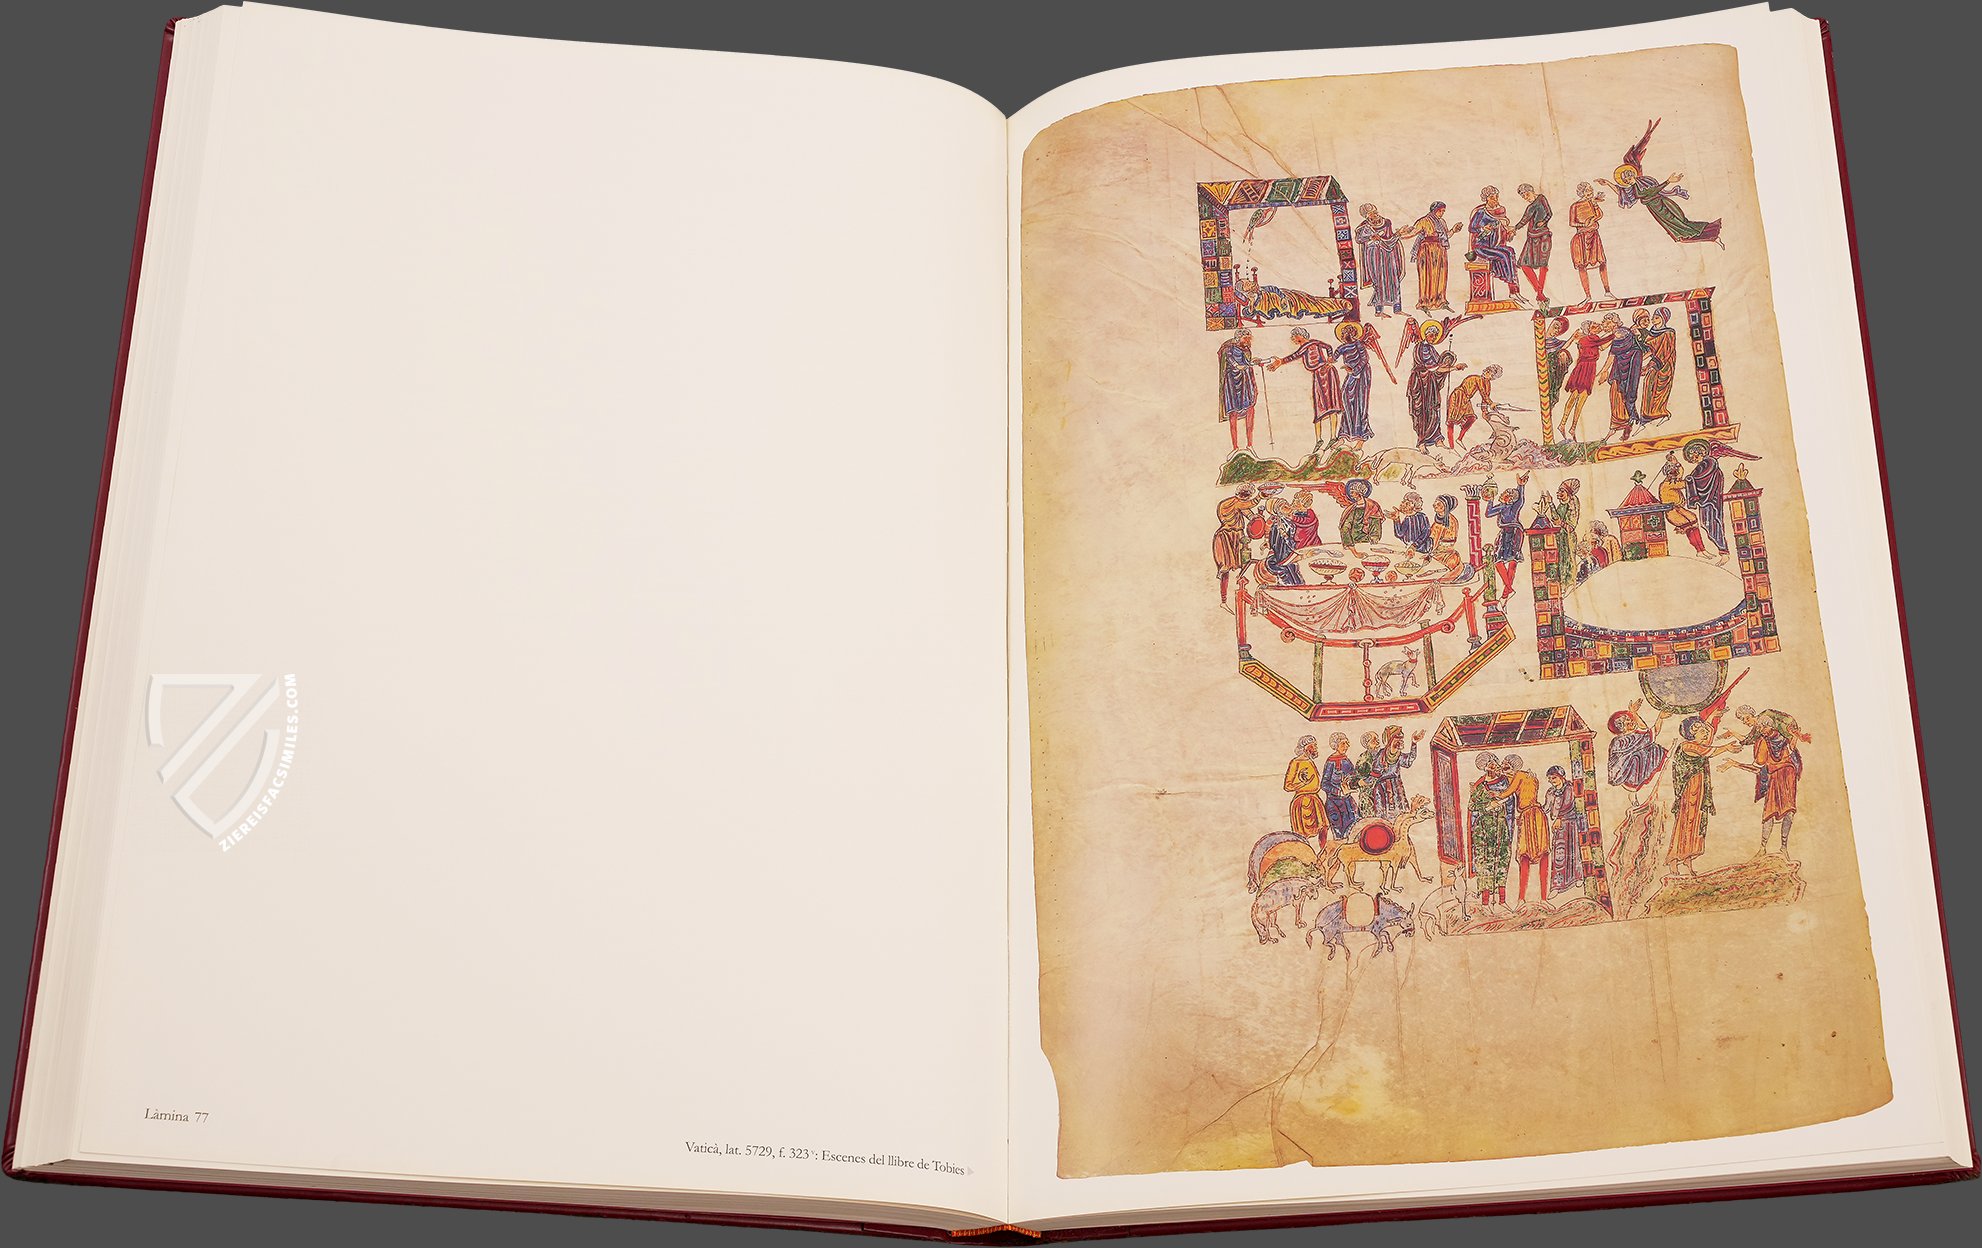 ZIEREISFACSIMILES.COM
Làmina 77
Vaticà, lat. 5729, f. 323ᵛ: Escenes del llibre de Tobies